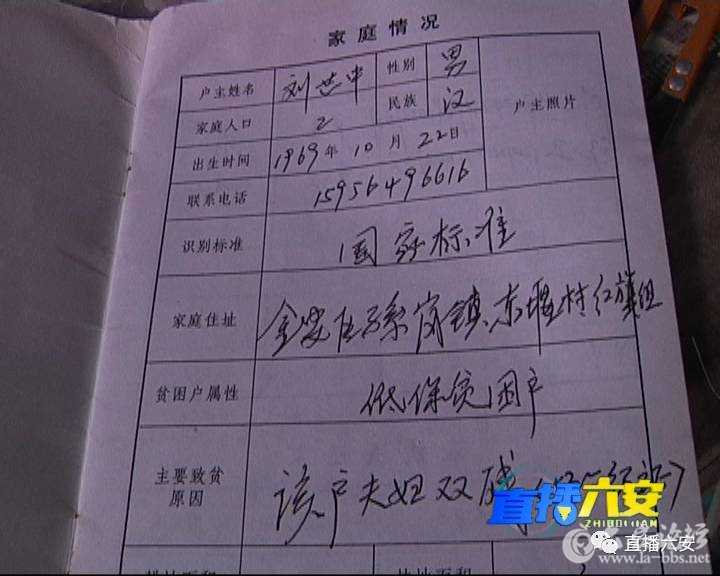 家庭情况
户主姓名 刘世中 性别 男 户主照片
家庭人口 2 民族 汉
出生时间 1969年10月22日
联系电话 15956496616
识别标准 国家标准
家庭住址 金安区孙岗镇东堰村红旗组
贫困户属性 低保贫困户
主要致贫
原因 该户夫妇双残
直播六安
ZHIBOLUAN
直播六安
www.la-bbs.net